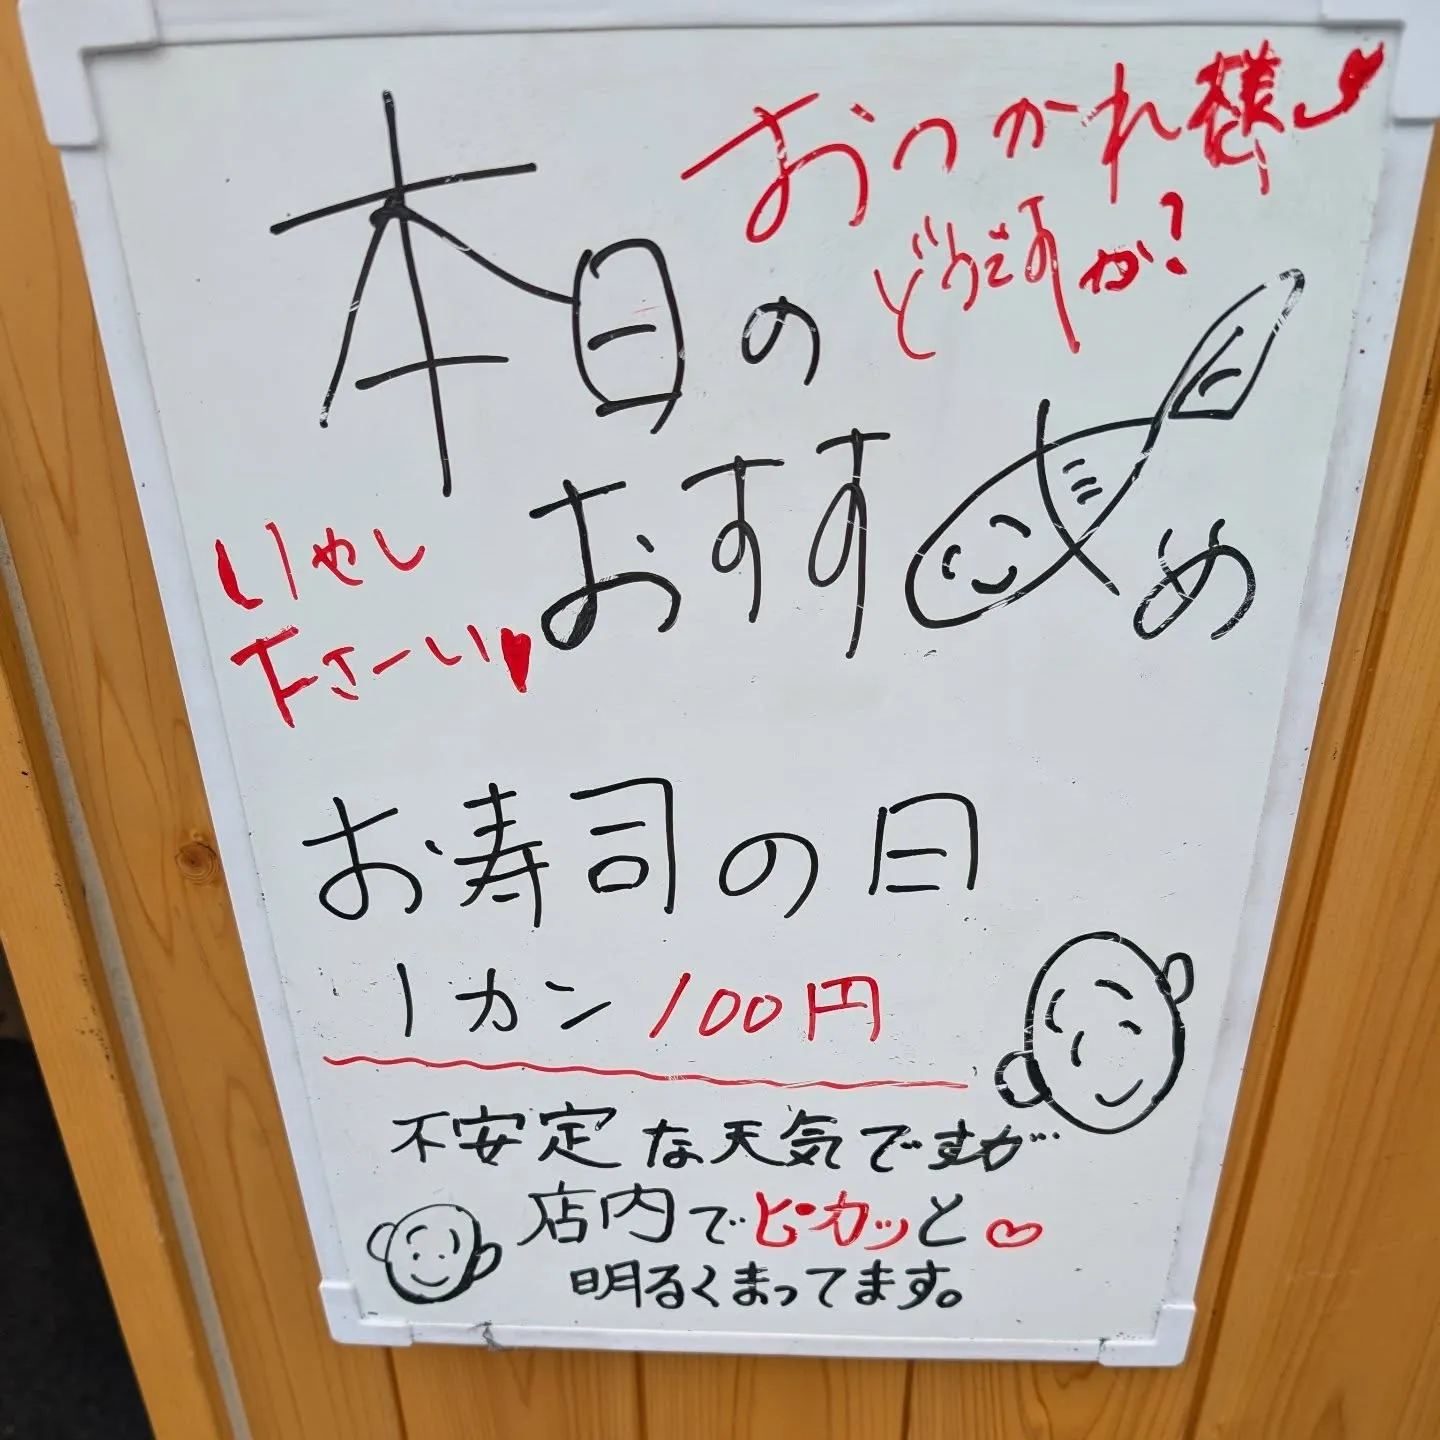 おつかれ様
どうですか?
本日の
おすすめ
いやし
下さーい♥
お寿司の日
1カン100円
不安定な天気ですが…
店内でピカッと♡
明るくまってます。